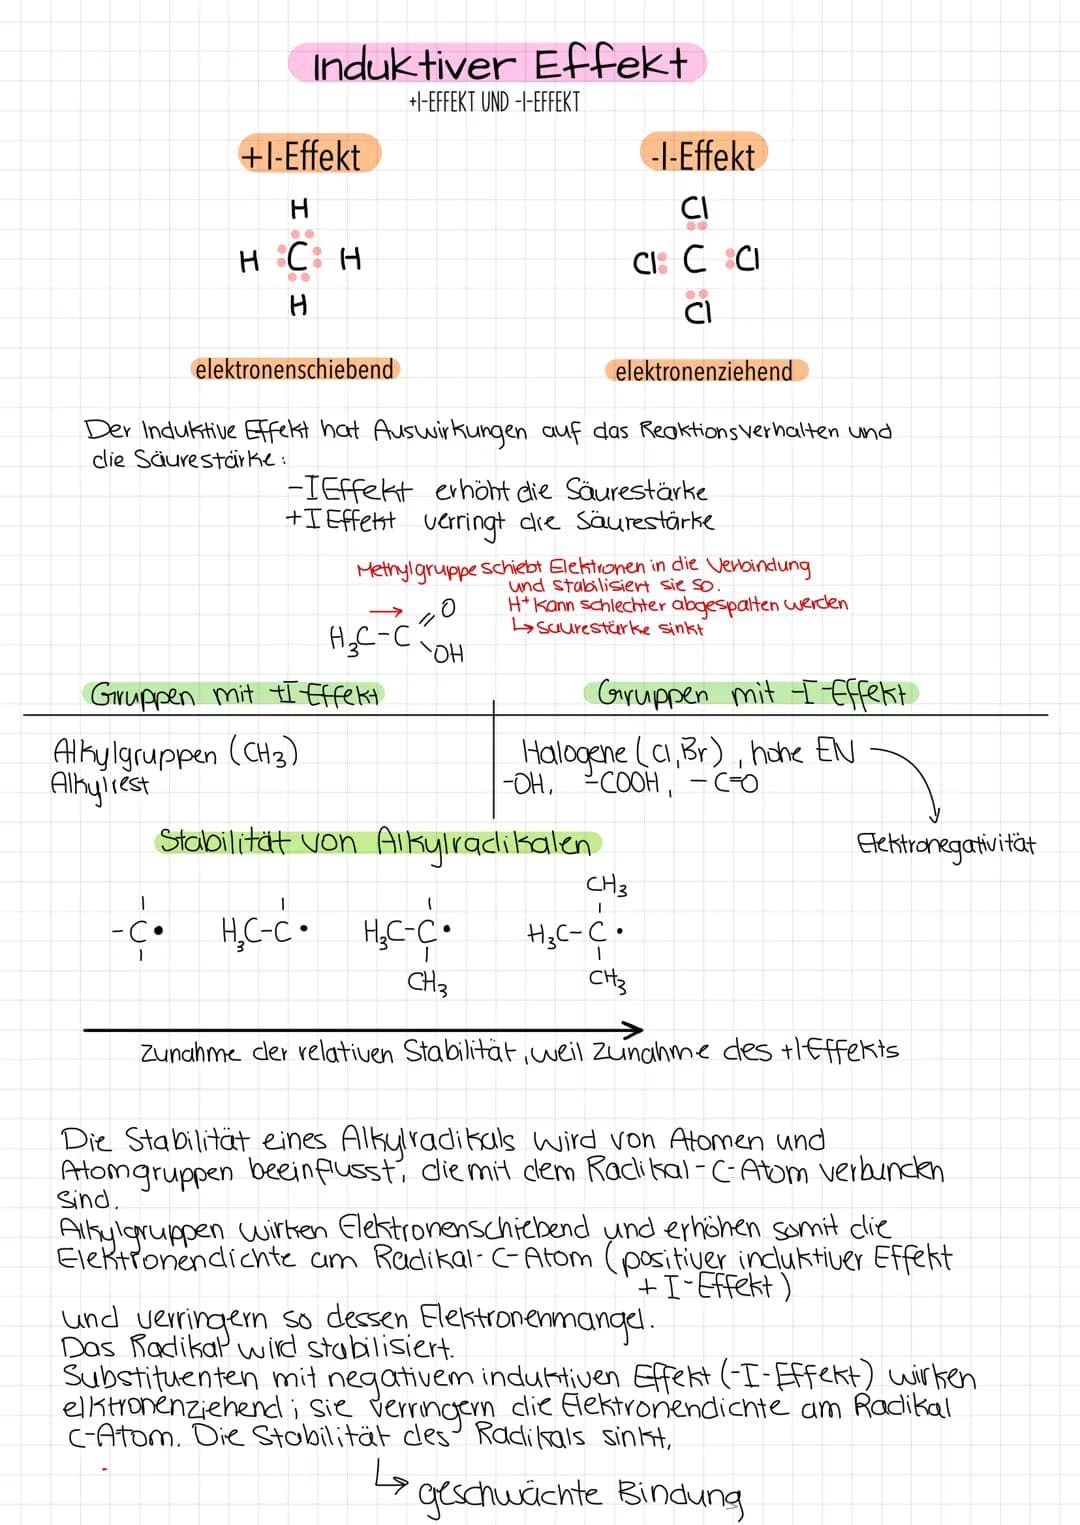 Induktiver Effekt
+I-EFFEKT UND -I-EFFEKT
+I-Effekt
-I-Effekt
H
H C H
H
Cl
Cl C Cl
Cl
elektronenschiebend
elektronenziehend
Der Induktive Effekt hat Auswirkungen auf das Reaktionsverhalten und
die Säurestärke:
-I Effekt erhöht die Säurestärke
+I Effekt verringt die Säurestärke
Methylgruppe schiebt Elektronen in die Verbindung
und stabilisiert sie so.
H+ kann schlechter abgespalten werden
↳ Säurestärke sinkt
→
H₃C-C =O
OH
Gruppen mit +I-Effekt
Gruppen mit -I-Effekt
Alkylgruppen (CH₃)
Alkylrest
Halogene (Cl, Br), hohe EN
-OH, -COOH, -C=O
Elektronegativität
Stabilität von Alkylradikalen
CH₃
-C• H₃C-C• H₃C-C• H₃C-C•
CH₃ CH₃
Zunahme der relativen Stabilität, weil Zunahme des +I Effekts
Die Stabilität eines Alkylradikals wird von Atomen und
Atomgruppen beeinflusst, die mit dem Radikal-C-Atom verbunden
sind.
Alkylgruppen wirken Elektronenschiebend und erhöhen somit die
Elektronendichte am Radikal-C-Atom (positiver induktiver Effekt
+ I-Effekt)
und verringern so dessen Elektronenmangel.
Das Radikal wird stabilisiert.
Substituenten mit negativem induktiven Effekt (-I-Effekt) wirken
elktronenziehend; sie verringern die Elektronendichte am Radikal
C-Atom. Die Stabilität des Radikals sinkt,
↳ geschwächte Bindung